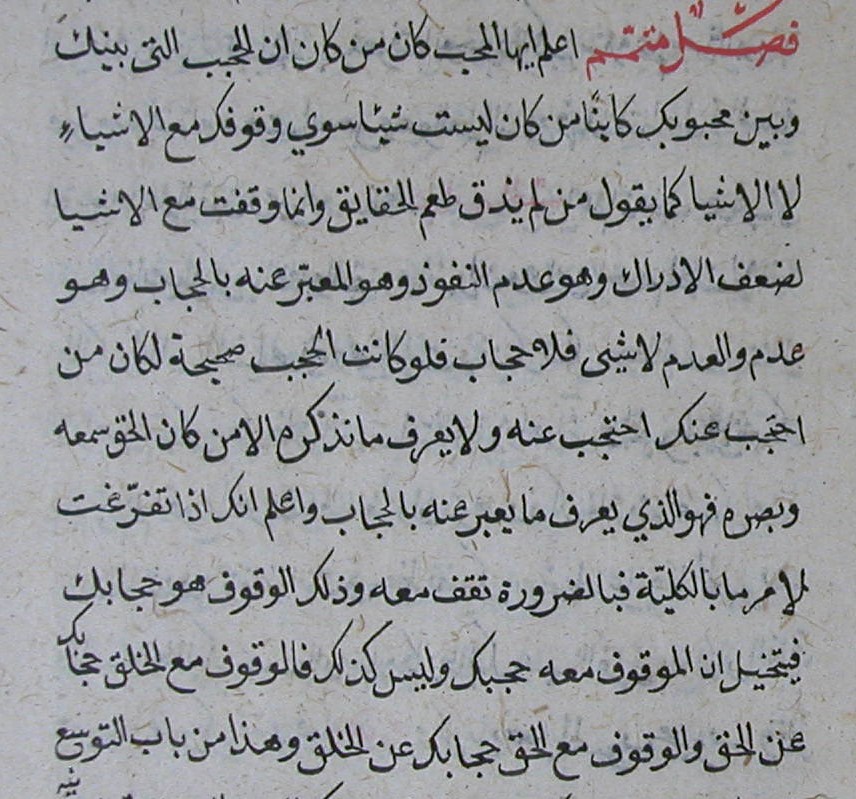 فصل متمم اعلم ايها المحب كان من كان ان الحجب التى بينك
وبين محبوبك كاينًا من كان ليست شيئا سوي وقوفك مع الاشياء
لا الاشيا كما يقول من لم يذق طعم الحقايق وانما وقفت مع الاشيا
لضعف الادراك وهو عدم النفوذ وهو المعبّر عنه بالحجاب وهو
عدم والعدم لا شيى فلا حجاب فلو كانت الحجب صحيحة لكان من
احتجب عنك احتجب عنه ولا يعرف ما نذكره الا من كان الحق سمعه
وبصره فهو الذي يعرف ما يعبر عنه بالحجاب واعلم انك اذا تفرّغت
لامر ما بالكليّة فبالضرورة تقف معه وذلك الوقوف هو حجابك
فيتخيل ان الموقوف معه حجبك وليس كذلك فالوقوف مع الخلق حجابك
عن الحق والوقوف مع الحق حجابك عن الخلق وهذا من باب التوسع